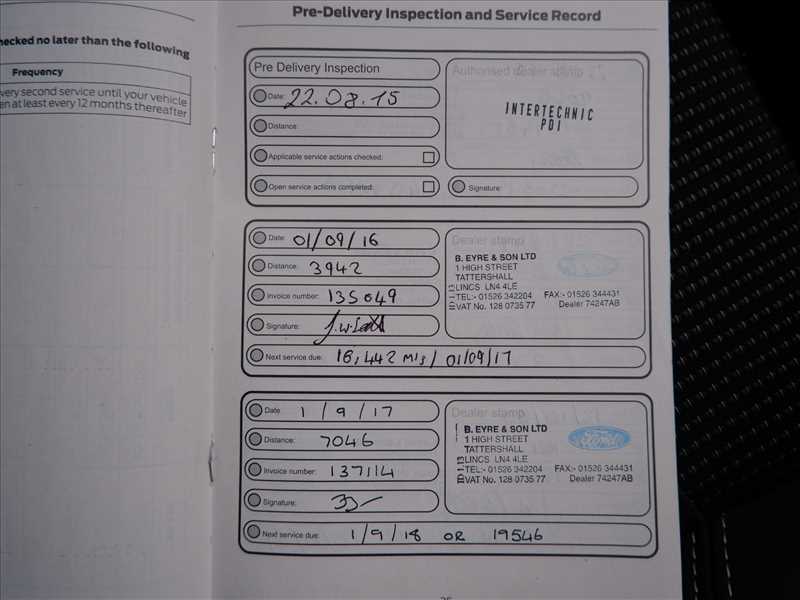 hecked no later than the following
Frequency
very second service until your vehicle
en at least every 12 months thereafter
Pre-Delivery Inspection and Service Record
Pre Delivery Inspection
Authorised dealer stamp
Date: 22.08.15
INTERTECHNIC
PDI
Distance:
Applicable service actions checked:
Open service actions completed:
Signature:
Date: 01/09/16
Distance: 3942
Invoice number: 135049
Signature:
Dealer stamp
B. EYRE & SON LTD
1 HIGH STREET
TATTERSHALL
LINCS LN4 4LE
TEL:- 01526 342204 FAX:- 01526 344431
VAT No. 128 0735 77 Dealer 74247AB
Next service due: 16,442 MLS / 01/09/17
Date: 1 / 9 / 17
Distance: 7046
Invoice number: 137114
Signature:
Dealer stamp
B. EYRE & SON LTD
Ford
1 HIGH STREET
TATTERSHALL
LINCS LN4 4LE
TEL:- 01526 342204 FAX:- 01526 344431
VAT No. 128 0735 77 Dealer 74247AB
Next service due: 1 / 9 / 18 OR 19546